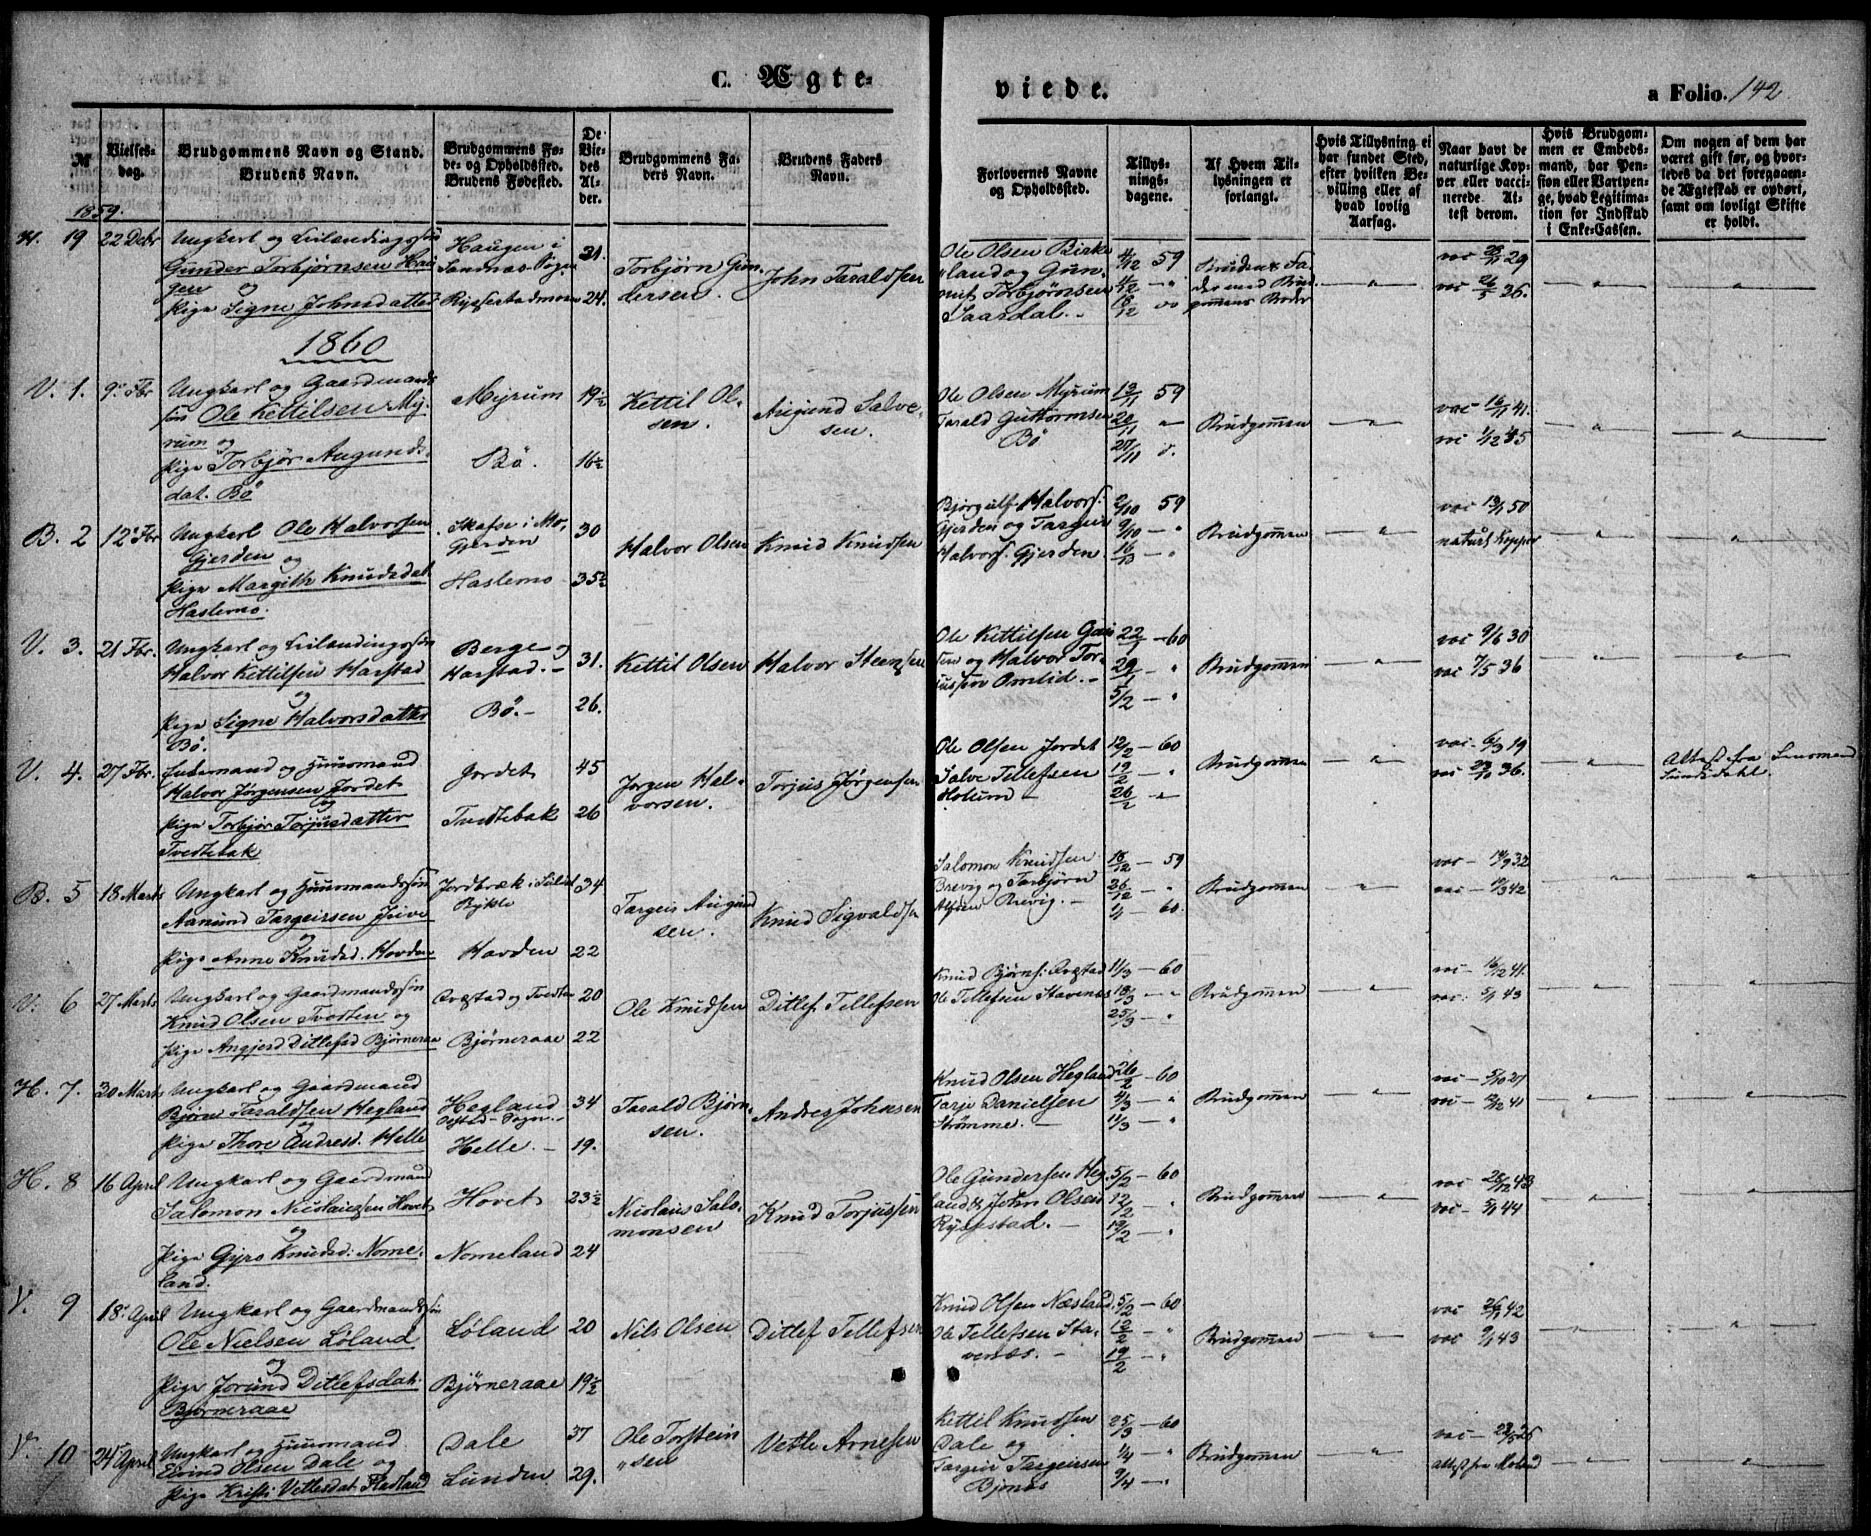 C. Ægte-
viede.
a Folio. 142
№
Vielses-
dag.
Brudgommens Navn og Stand.
Brudens Navn.
Brudgommens Fø-
de- og Opholdssted.
Brudens Fødested.
De
Vie-
des
Al-
der.
Brudgommens Fa-
ders Navn.
Brudens Faders
Navn.
Forlovernes Navne
og Opholdssted.
Tillys-
nings-
dagene.
Af Hvem Til-
lysningen er
forlangt.
Hvis Tillysning ei
har fundet Sted,
efter hvilken Be-
villing eller af
hvad lovlig
Aarsag.
Naar havt de
naturlige Kop-
per eller vacci-
nerede. At-
test derom.
Hvis Brudgom-
men er Embeds-
mand, har Pen-
sion eller Vartpen-
ge, hvad Legitima-
tion for Indskud
i Enke-Cassen.
Om nogen af dem har
været gift før, og hvor-
ledes da det foregaaen-
de Ægteskab er ophørt,
samt om lovligt Skifte
er holdt.
1859.
H. 19 22 Decbr Ungkarl og Leilændingssøn
Gunder Torbjørnsen Hau-
gen og
Pige Signe Johnsdatter
Haugen i
Sandnæs Sogn
Rygsestadmoen
21.
24.
Torbjørn Gun-
dersen.
John Taraldsen
Ole Olsen Birke-
land og Gun-
nuf Torbjørnsen
Saardal. -
4/12 59
11/12 - "
18/12 "
Brudens Fa-
der med Brud-
gommens Broder
vac 29
vac 26/5 36.
1860
V. 1. 9. Fbr Ungkarl og Gaardmands
søn Ole Kettilsen My-
rum og
Pige Torbjør Augunds-
dat. Bø
Myrum
Bø.
19½
16½
Kettil Ol-
sen.
Augund Salve-
sen.
Ole Olsen Myrum
Tarald Guttormsen
Bø
13/11 59
20/11 "
27/11
Brudgommen
vac 16/11 41.
vac 1/12 45
B. 2 12 Fbr Ungkarl Ole Halvorsen
Gjerden og
Pige Margith Knudsdat
Haslemo.
Skafse i Mo,
Gjerden
Haslemo
30
35½
Halvor Olsen
Knud Knudsen
Bjørgulf Halvors.
Gjerden og Targeir
Halvors. Gjerden
2/10 59
9/10 - "
16/10 - "
Brudgommen
vac 50
naturl. Kopper
V. 3. 21 Fbr. Ungkarl og Leilændingssøn
Halvor Kettilsen Harstad
og
Pige Signe Halvorsdatter
Bø.
Berge og
Harstad. -
Bø. -
31.
26.
Kettil Olsen
Halvor Steensen
Ole Kettilsen
og Halvor Tor-
jussen Omlid. -
22/1 - 60
29/1 - "
5/2 - "
Brudgommen
vac 9/6 30
vac 7/5 36
V. 4. 27 Fbr. Enkemand og Huusmand
Halvor Jørgensen Jordet
og
Pige Torbjør Torjusdatter
Tvedtebak
Jordet
Tvedtebak
45
26
Jørgen Hal-
vorsen.
Torjus Jørgensen
Ole Olsen Jordet
Salve Tellefsen
Hotum -
12/2 - 60
19/2 - "
26/2 - "
Brudgommen
vac 6/3 19
vac 36.
Attest fra Lensmand
Lundedahl.
B. 5 18 Marts Ungkarl og Huusmandssøn
Aanund Targeirsen Juve
og
Pige Anne Knudsd. Hovden
Jordbræk i
Bykle
Hovden
34
22
Targeir Augund
sen.
Knud Sigvaldsen
Salomon Knudsen
Breivig og Torbjørn
Breivig. -
18/12 - 59
26/12 - "
1/1 - 60.
Brudgommen
vac - 32
vac - 42
V. 6 27 Marts Ungkarl og Gaardmandssøn
Knud Olsen Tvedten og
Pige Angjerd Ditlefsd Bjørneraa
Rygstad og Tvedten
Bjørneraae
20
22
Ole Knudsen
Ditlef Tellefsen
Knud Bjørns. Rygstad
Ole Tellefsen Stavenæs
11/3 - 60
18/3 - "
25/3 - "
Brudgommen
vac - 16/12 41.
vac. 5/11 43
H. 7. 30 Marts Ungkarl og Gaardmand
Bjørn Taraldsen Hegland
og
Pige Thore Andresd. Helle
Hegland
Sogn. -
Helle. -
34
19.
Tarald Bjørn-
sen.
Andres Johnsen
Knud Olsen Hegland
Tarje Danielsen
Strømme. -
26/2 - 60
4/3 - "
11/3 - "
Brudgommen
vac - 5/10 27
vac - 41
H. 8 16 April Ungkarl og Gaardmand
Salomon Nicolaiessen Hovet
og
Pige Gyro Knudsd: Nome-
land.
Hovet
Nomeland
23½
24
Nicolaus Salo-
monsen
Knud Torjussen
Ole Gundersen Heg-
land & John Olsen
Rygsestad. -
5/2 - 60
12/2 - "
19/2 - "
Brudgommen
vac - 28/12 43
vac - 44
V. 9 18 April Ungkarl og Gaardmandssøn
Ole Nielsen Løland
og
Pige Jorund Ditlefsdat.
Bjørneraae
Løland
Bjørneraae
20
19½
Nils Olsen
Ditlef Tellefsen
Knud Olsen Næsland
Ole Tellefsen Sta-
venæs. -
5/2 - 60
12/2 - "
19/2 - "
Brudgommen
vac 42
vac 43
V. 10 24 April Ungkarl og Huusmand
Eivind Olsen Dale og
Pige Kristi Vetlesdat. Fladland
Dale
Lunden
37
29.
Ole Torstein
"sen
Vetle Arnesen
Kettil Knudsen
Dale og
Targeir Targeirsen
Bjønæs
25/3 - 60
1/4 - "
9/4 - "
Brudgommen
vac - 25
attest fra Moland